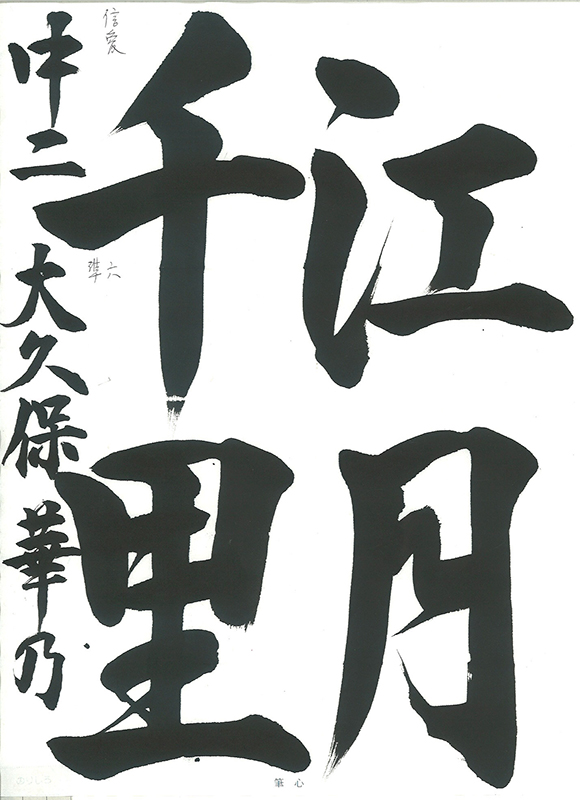 江月
千里
中二 大久保華乃
信愛
準六
筆心